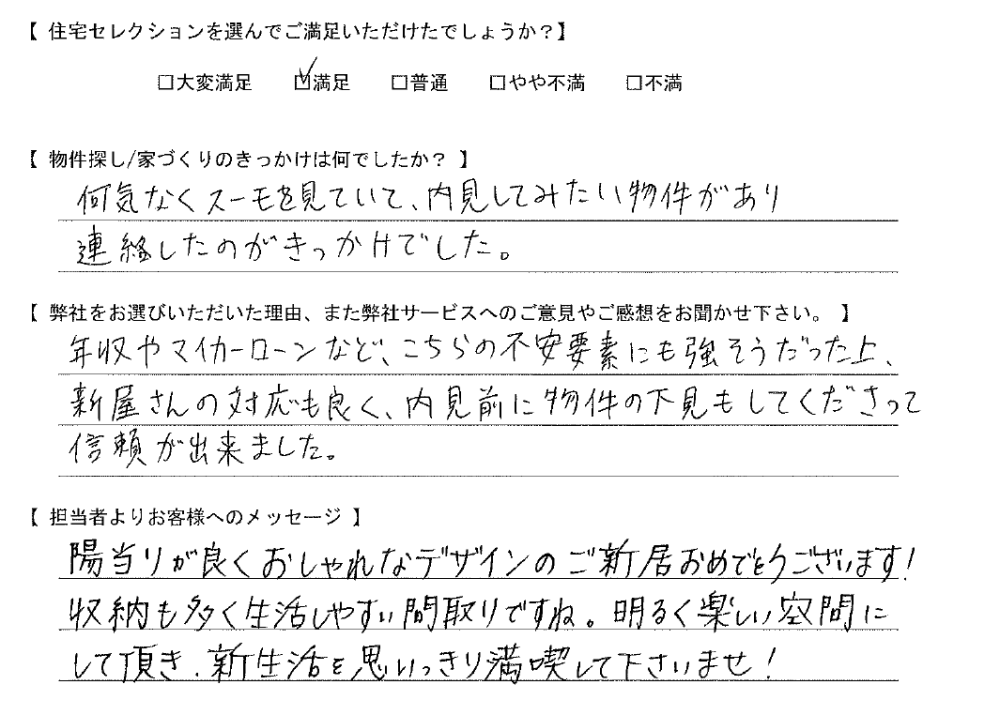 【 住宅セレクションを選んでご満足いただけたでしょうか？】
□大変満足 ☑満足 □普通 □やや不満 □不満
【 物件探し/家づくりのきっかけは何でしたか？ 】
何気なくスーモを見ていて、内見してみたい物件があり
連絡したのがきっかけでした。
【 弊社をお選びいただいた理由、また弊社サービスへのご意見やご感想をお聞かせ下さい。 】
年収やマイカーローンなど、こちらの不安要素にも強そうだった上、
新屋さんの対応も良く、内見前に物件の下見もしてくださって
信頼が出来ました。
【 担当者よりお客様へのメッセージ 】
陽当りが良くおしゃれなデザインのご新居おめでとうございます!
収納も多く生活しやすい間取りですね。明るく楽しい空間に
して頂き、新生活を思いっきり満喫して下さいませ!